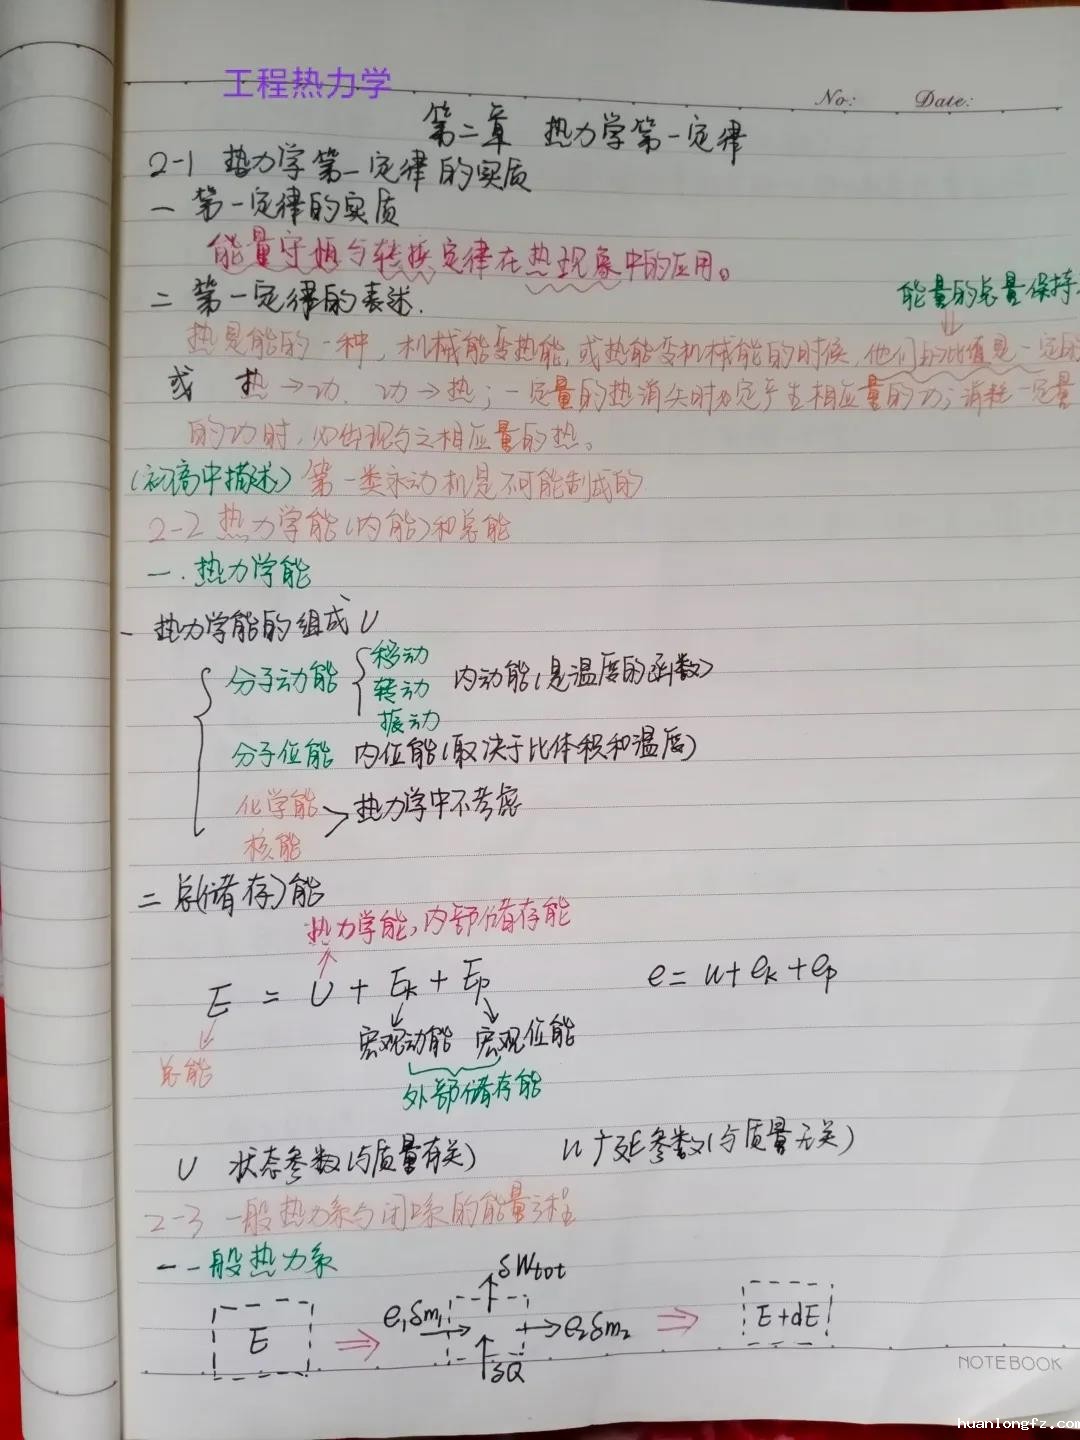 工程热力学
No:    Date:
第二章 热力学第一定律
2-1 热力学第一定律的实质
一 第一定律的实质
能量守恒与转换定律在热现象中的应用。
二 第一定律的表述.
能量的总量保持
热是能的一种, 机械能变热能, 或热能变机械能的时候, 他们的比值是一定的
或 热→功. 功→热; 一定量的热消失时必定产生相应量的功; 消耗一定量
的功时, 必出现与之相应量的热。
(初高中描述) 第一类永动机是不可能制成的
2-2 热力学能(内能)和总能
一. 热力学能
- 热力学能的组成 U
分子动能 移动 转动 振动 内动能(是温度的函数)
分子位能 内位能(取决于比体积和温度)
化学能
核能 > 热力学中不考虑
二 总(储存)能
热力学能, 内部储存能
E = U + Ek + Ep    e = u + ek + ep
宏观动能 宏观位能
总能
外部储存能
U 状态参数(与质量有关)    u 参数(与质量无关)
2-3 一般热力系与闭口系的能量方程
一 一般热力系
δWtot
E ⇒ e₁δm₁ → → e₂δm₂ ⇒ E+dE
δQ
NOTEBOOK
huanlongfz.com